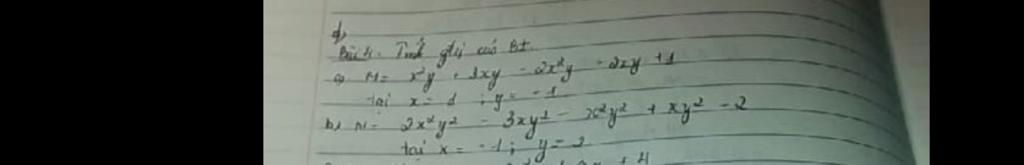 d,
Bài 4. Tính gtrị của Bt.
a) M = x²y + 3xy - 2x²y - 2xy + 1
tại x = 1 ; y = -1
b, N = 2x²y² - 3xy² - x²y² + xy² - 2
tại x = -1 ; y = 2